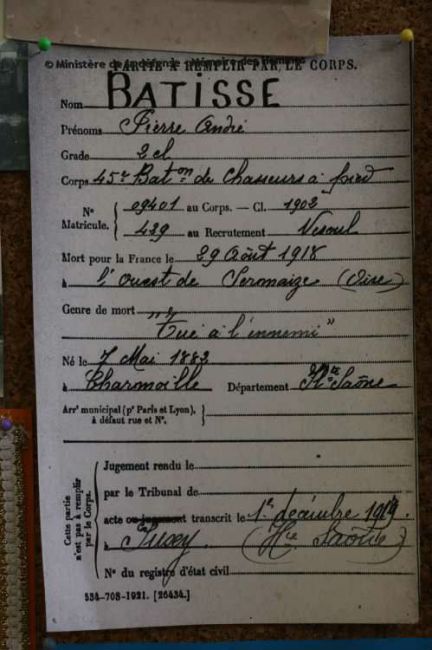 © Ministère de la défense - Mémoire des hommes
PARTIE À REMPLIR PAR LE CORPS.
Nom BATISSE
Prénoms Pierre André
Grade 2 cl
Corps 45e Baton de Chasseurs à pied
N° Matricule. { 09401 au Corps. — Cl. 1902
439 au Recrutement Vesoul
Mort pour la France le 29 Août 1918
à l'ouest de Sermaize (Oise)
Genre de mort "Tué à l'ennemi"
Né le 7 Mai 1882
à Charmoille Département Hte Saône
Arr' municipal (p' Paris et Lyon),
à défaut rue et N°.
Cette partie
n'est pas à remplir
par le Corps.
Jugement rendu le
par le Tribunal de
acte ou jugement transcrit le 1er décembre 1919.
à Pusey. (Hte Saône)
N° du registre d'état civil
534-708-1921. [26434.]